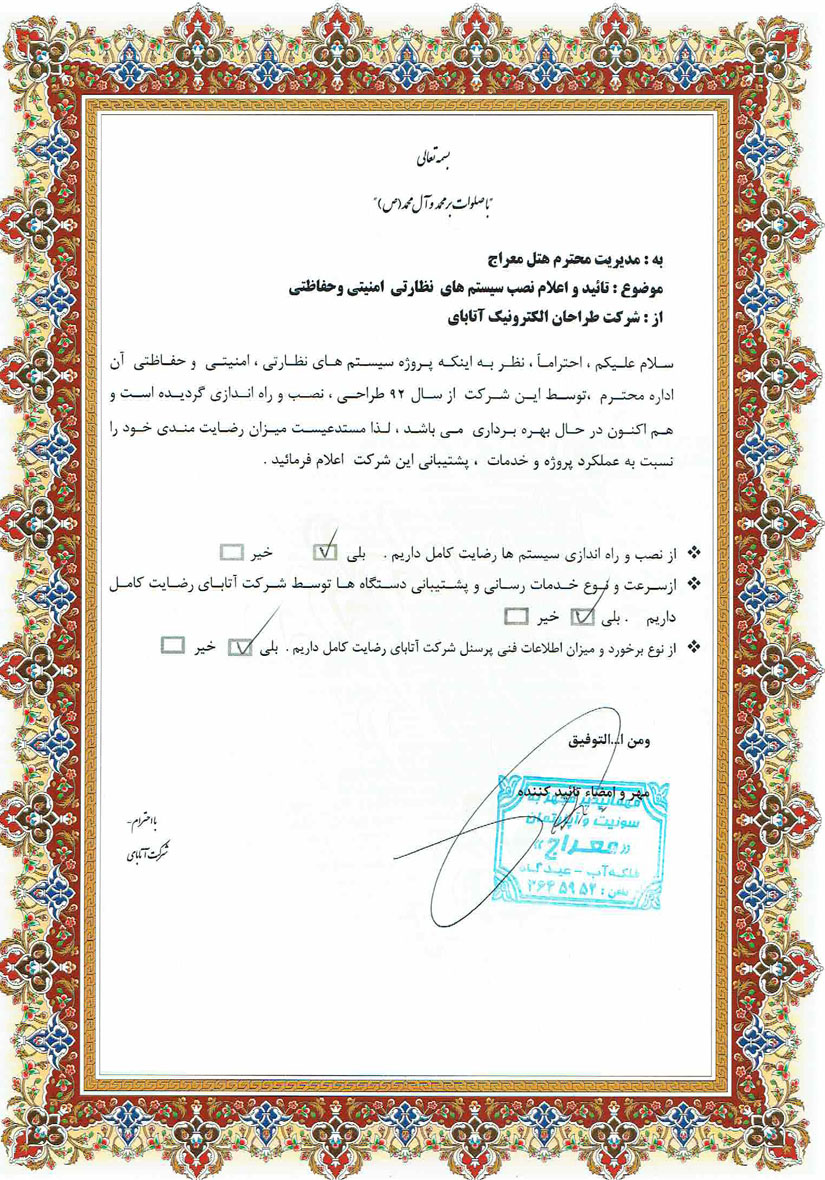 بسمه تعالی
"با صلوات بر محمد و آل محمد (ص)"
به : مدیریت محترم هتل معراج
موضوع : تائید و اعلام نصب سیستم های نظارتی امنیتی وحفاظتی
از : شرکت طراحان الکترونیک آتابای
سلام علیکم ، احتراماً ، نظر به اینکه پروژه سیستم های نظارتی ، امنیتی و حفاظتی آن
اداره محترم ،توسط این شرکت از سال ۹۲ طراحی ، نصب و راه اندازی گردیده است و
هم اکنون در حال بهره برداری می باشد ، لذا مستدعیست میزان رضایت مندی خود را
نسبت به عملکرد پروژه و خدمات ، پشتیبانی این شرکت اعلام فرمائید .
❖ از نصب و راه اندازی سیستم ها رضایت کامل داریم . بلی ☑ خیر ☐
❖ ازسرعت و نوع خدمات رسانی و پشتیبانی دستگاه ها توسط شرکت آتابای رضایت کامل
داریم . بلی ☑ خیر ☐
❖ از نوع برخورد و میزان اطلاعات فنی پرسنل شرکت آتابای رضایت کامل داریم . بلی ☑ خیر ☐
ومن ا...التوفیق
مهر و امضاء تائید کننده
سوئیت و آپارتمان
معراج
فلکه آب - عیدگاه
تلفن : ۲۶۴ ۵۹ ۵۲
با احترام-
شرکت آتابای